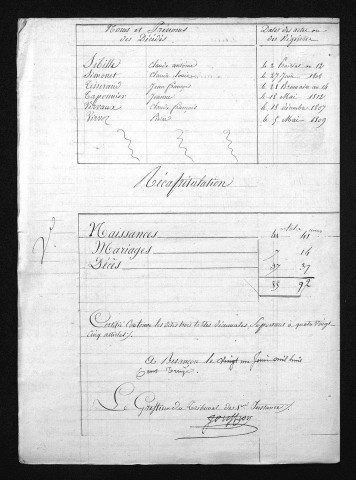 Noms et Prénoms des Décédés
Dates des actes ou des Registres
Sibille Claude antoine le 2 Prairial an 12
Simonet Claude Louis le 27 Juin 1808
Tisserand Jean françois le 21 Brumaire an 14
Taponnier Jeanne le 18 Mai 1812
Claude françois le 18 Décembre 1807
Pierre le 5 Mai 1809
Récapitulation
Naissances 41 41
Mariages 7 14
Décès 37 37
85 92
Certifié Conforme les dites trois tables décennales Supposant à quatre vingt
cinq articles
A Besançon le vingt un Juin mil huit
cent treize.
Le Greffier du Tribunal de 1ère Instance